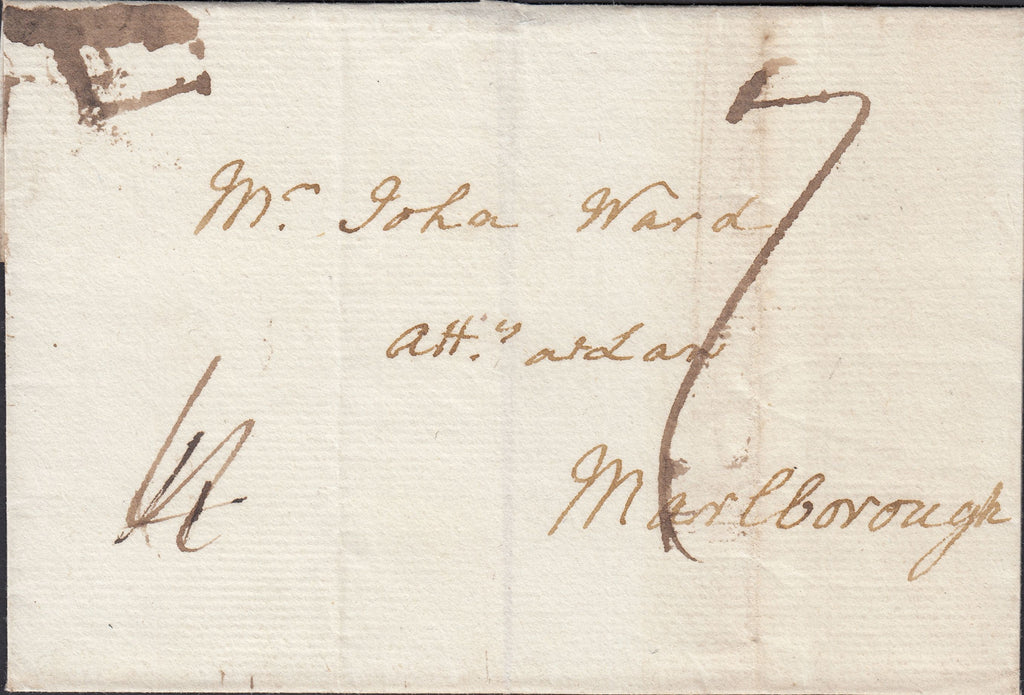 7
Mr. John Ward
Atty. at Law
Marlborough